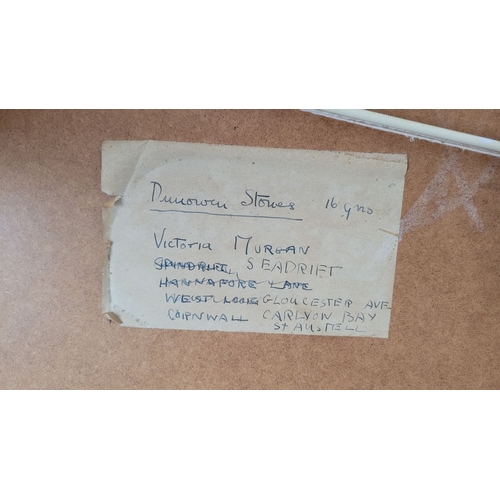 Dunowen Stones 16 gns
Victoria MORGAN
SPINDRIFT, SEADRIFT
HANNAFORE LANE
WEST LOOE GLOUCESTER AVE
CORNWALL CARLYON BAY
St AUSTELL